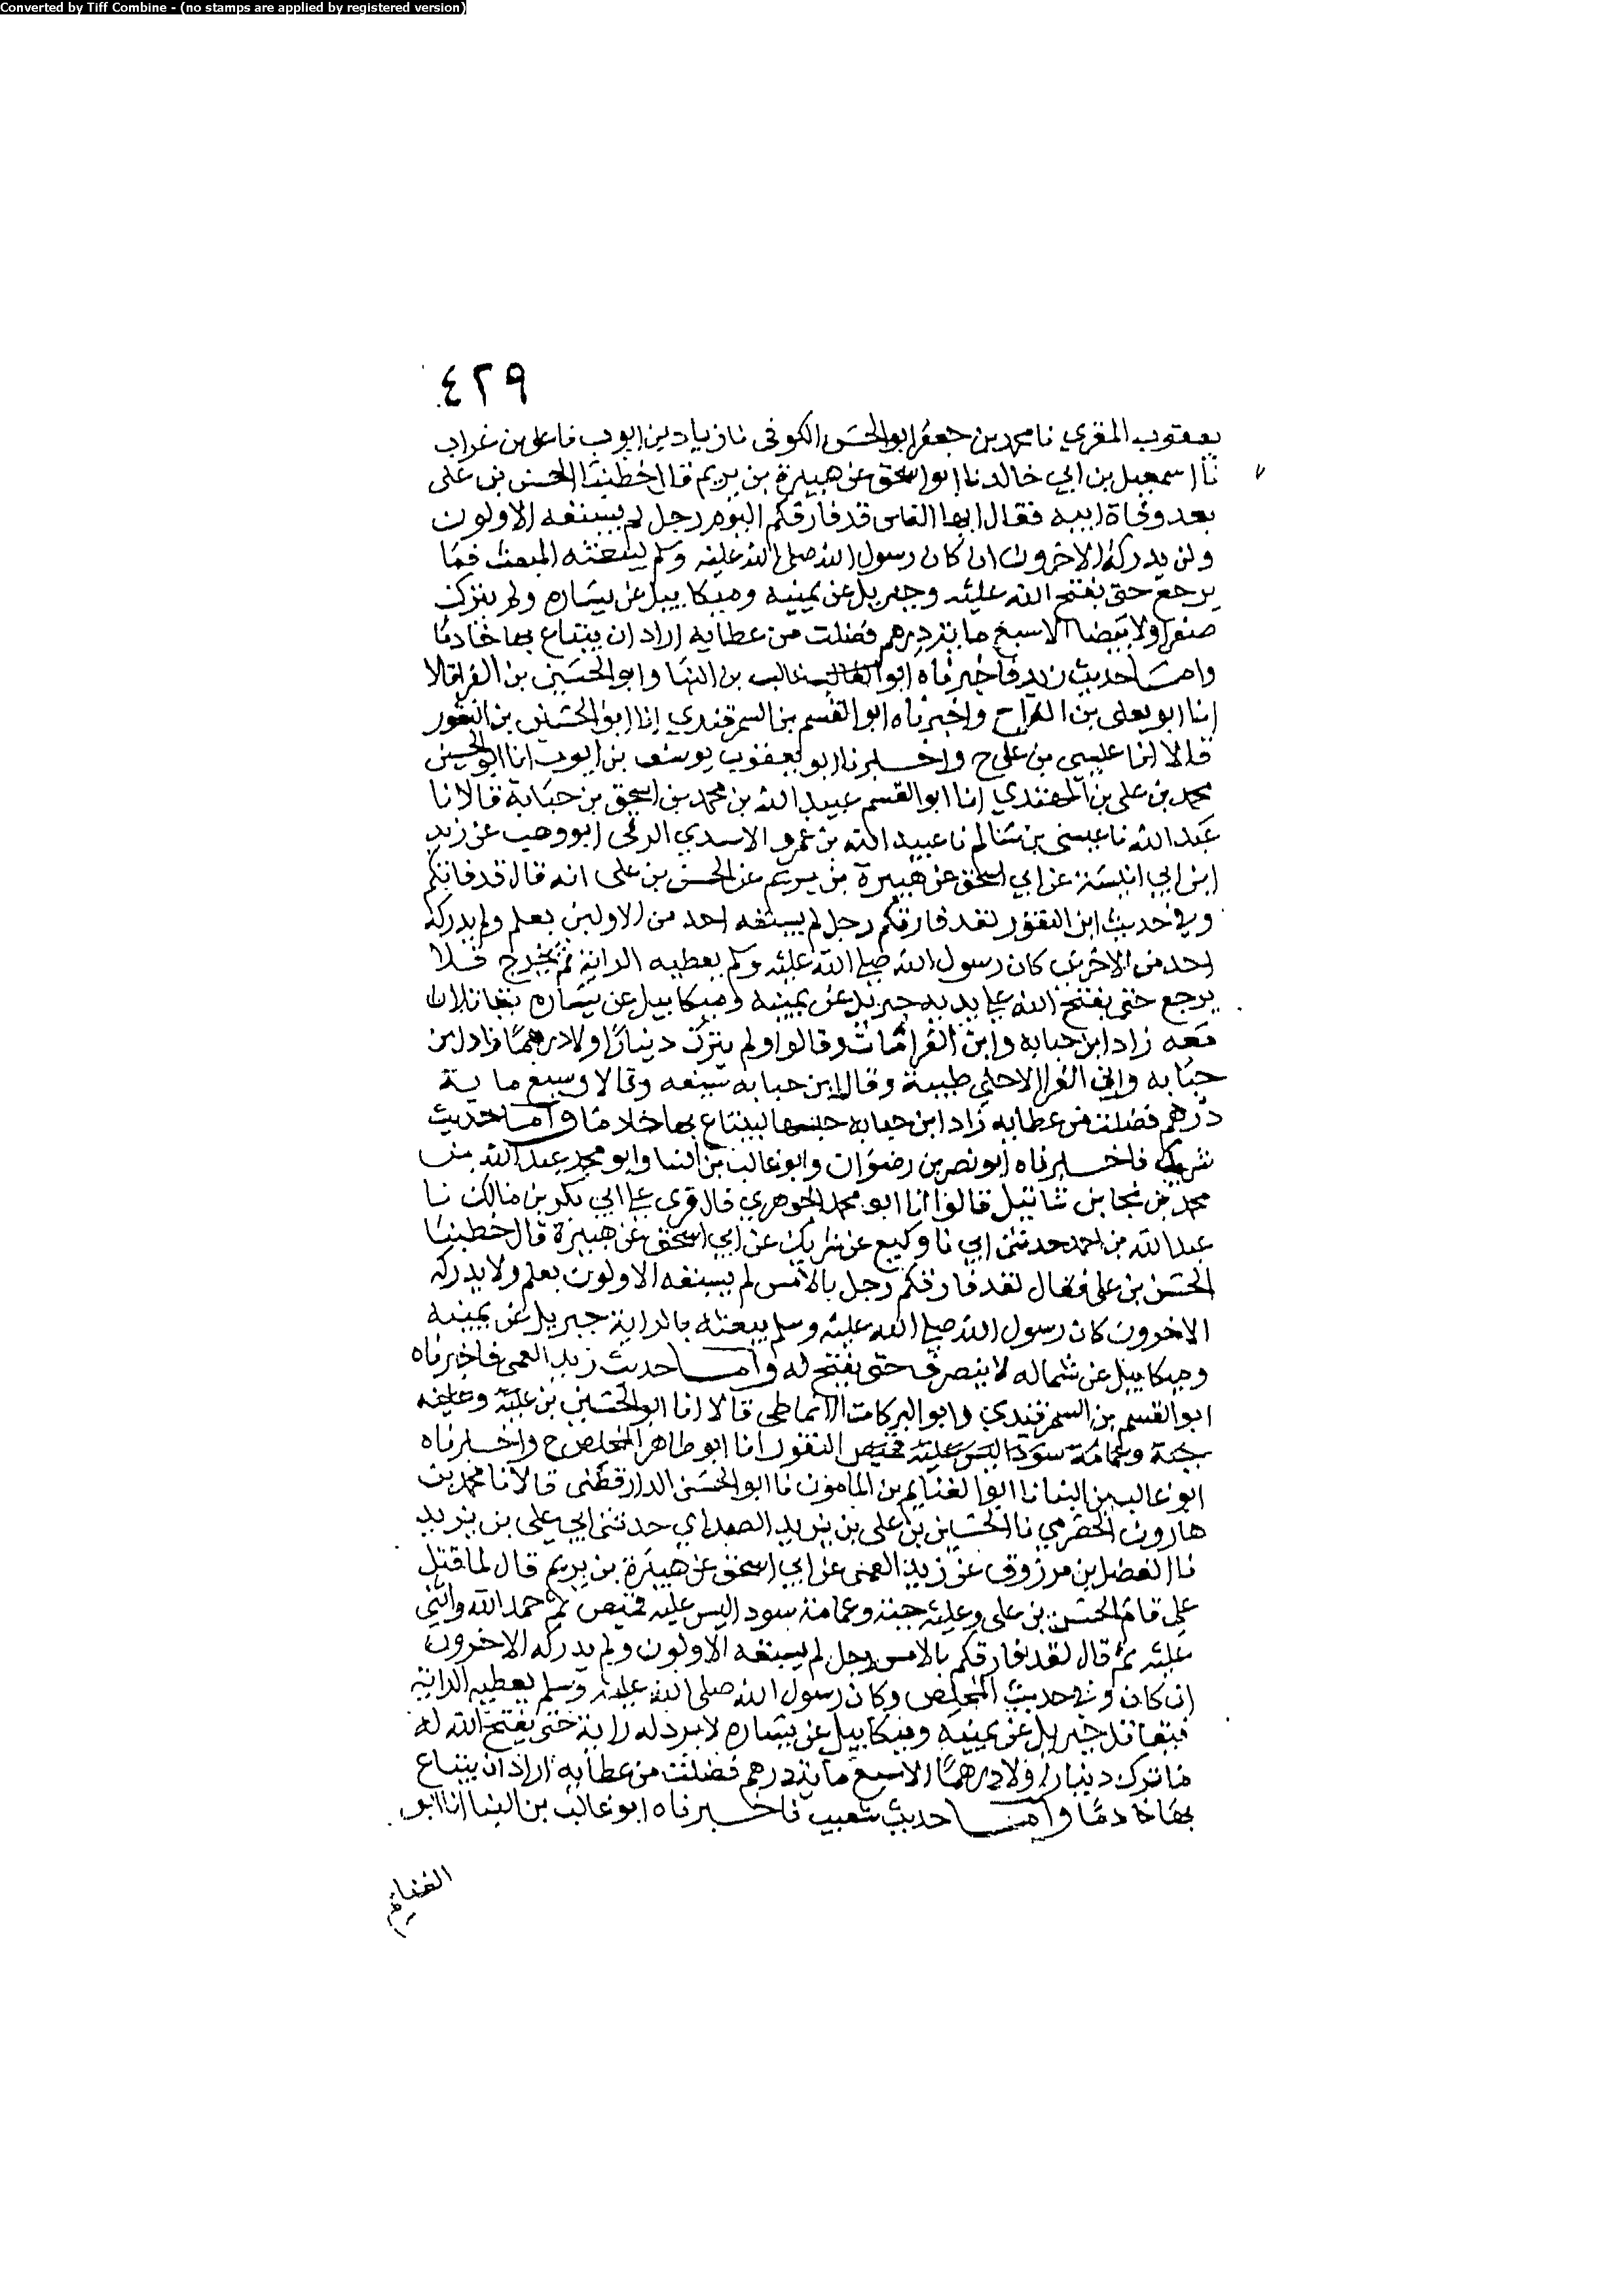 Converted by Tiff Combine - (no stamps are applied by registered version)
٤٢٩
يعقوب المقري نا محمد بن جعفر ابو الحسن الكوفى نا زياد بن ايوب نا على بن غراب
نا اسمعيل بن ابي خالد نا ابو اسحق عن هبيرة بن يريم قال خطبنا الحسن بن على
بعد وفاة ابيه فقال ايها الناس قد فارقكم اليوم رجل لم يسبقه الاولون
ولن يدركه الاخرون ان كان رسول الله صلى الله عليه وسلم ليبعثه المبعث فما
يرجع حتى يفتح الله عليه وجبريل عن يمينه وميكاييل عن يساره ولم يترك
صفرا ولا بيضا الا سبع ماية درهم فضلت من عطايه اراد ان يبتاع بها خادما
واما حديث زيد فاخبرناه ابو غالب بن البنا وابو الحسين بن الفرا قالا
انا ابو يعلى بن الفرا ح واخبرناه ابو القسم بن السمرقندي انا ابو الحسين بن النقور
قالا انا عيسى بن على ح واخبرنا ابو يعقوب يوسف بن ايوب انا ابو الحسين
محمد بن على بن المهتدي انا ابو القسم عبيد الله بن محمد بن اسحق بن حبابة قالا نا
عبد الله نا عيسى بن سالم نا عبيد الله بن عمرو الاسدي الرقى ابو وهب عن زيد
ابن ابي انيسة عن ابي اسحق عن هبيرة بن يريم عن الحسن بن على انه قال قد فاتكم
وفي حديث ابن النقور لقد فارقكم رجل لم يسبقه احد من الاولين بعلم ولم يدركه
احد من الاخرين كان رسول الله صلى الله عليه وسلم يعطيه الراية ثم يخرج فلا
يرجع حتى يفتح الله على يديه جبريل عن يمينه وميكاييل عن يساره يقاتلان
معه زاد ابن حبابه وابن الفرا مات وقالوا ولم يترك دينارا ولا درهما زاد ابن
حبابه وابن الفرا الا حلي طيبة وقال ابن حبابه سيفه وقالا وسبع ماية
درهم فضلت من عطايه زاد ابن حبابه حبسها ليبتاع بها خادما واما حديث
شريك فاخبرناه ابو نصر بن رضوان وابو غالب بن البنا وابو محمد عبد الله بن
محمد بن نجا بن شاتيل قالوا انا ابو محمد الجوهري قال قري على ابي بكر بن مالك نا
عبد الله بن احمد حدثني ابي نا وكيع عن شريك عن ابي اسحق عن هبيرة قال خطبنا
الحسن بن على فقال لقد فارقكم رجل بالامس لم يسبقه الاولون بعلم ولا يدركه
الاخرون كان رسول الله صلى الله عليه وسلم يبعثه بالراية جبريل عن يمينه
وميكاييل عن شماله لا ينصرف حتى يفتح له واما حديث زيد العمى فاخبرناه
ابو القسم بن السمرقندي وابو البركات الانماطى قالا انا ابو الحسين بن علية وعليه
جبة وعمامة سودا ليس عليه قميص النقور انا ابو طاهر المخلص ح واخبرناه
ابو غالب بن البنا نا ابو الغنايم بن المامون نا ابو الحسن الدارقطنى قالا نا محمد بن
هارون الحضرمي نا الحسين بن على بن يزيد الصداي حدثني ابي على بن يزيد
نا الفضل بن مرزوق عن زيد العمى عن ابي اسحق عن هبيرة بن يريم قال لما قتل
علي قام الحسن بن على وعليه جبة وعمامة سودا ليس عليه قميص ثم حمد الله واثنى
عليه ثم قال لقد فارقكم بالامس رجل لم يسبقه الاولون ولم يدركه الاخرون
ان كان وفي حديث المخلص وكان رسول الله صلى الله عليه وسلم يعطيه الراية
فيقاتل جبريل عن يمينه وميكاييل عن يساره لا يرد له راية حتى يفتح الله له
ما ترك دينارا ولا درهما الا سبع ماية درهم فضلت من عطايه اراد ان يبتاع
بها خادما واما حديث شعيب فاخبرناه ابو غالب بن البنا انا ابو
الغنايم